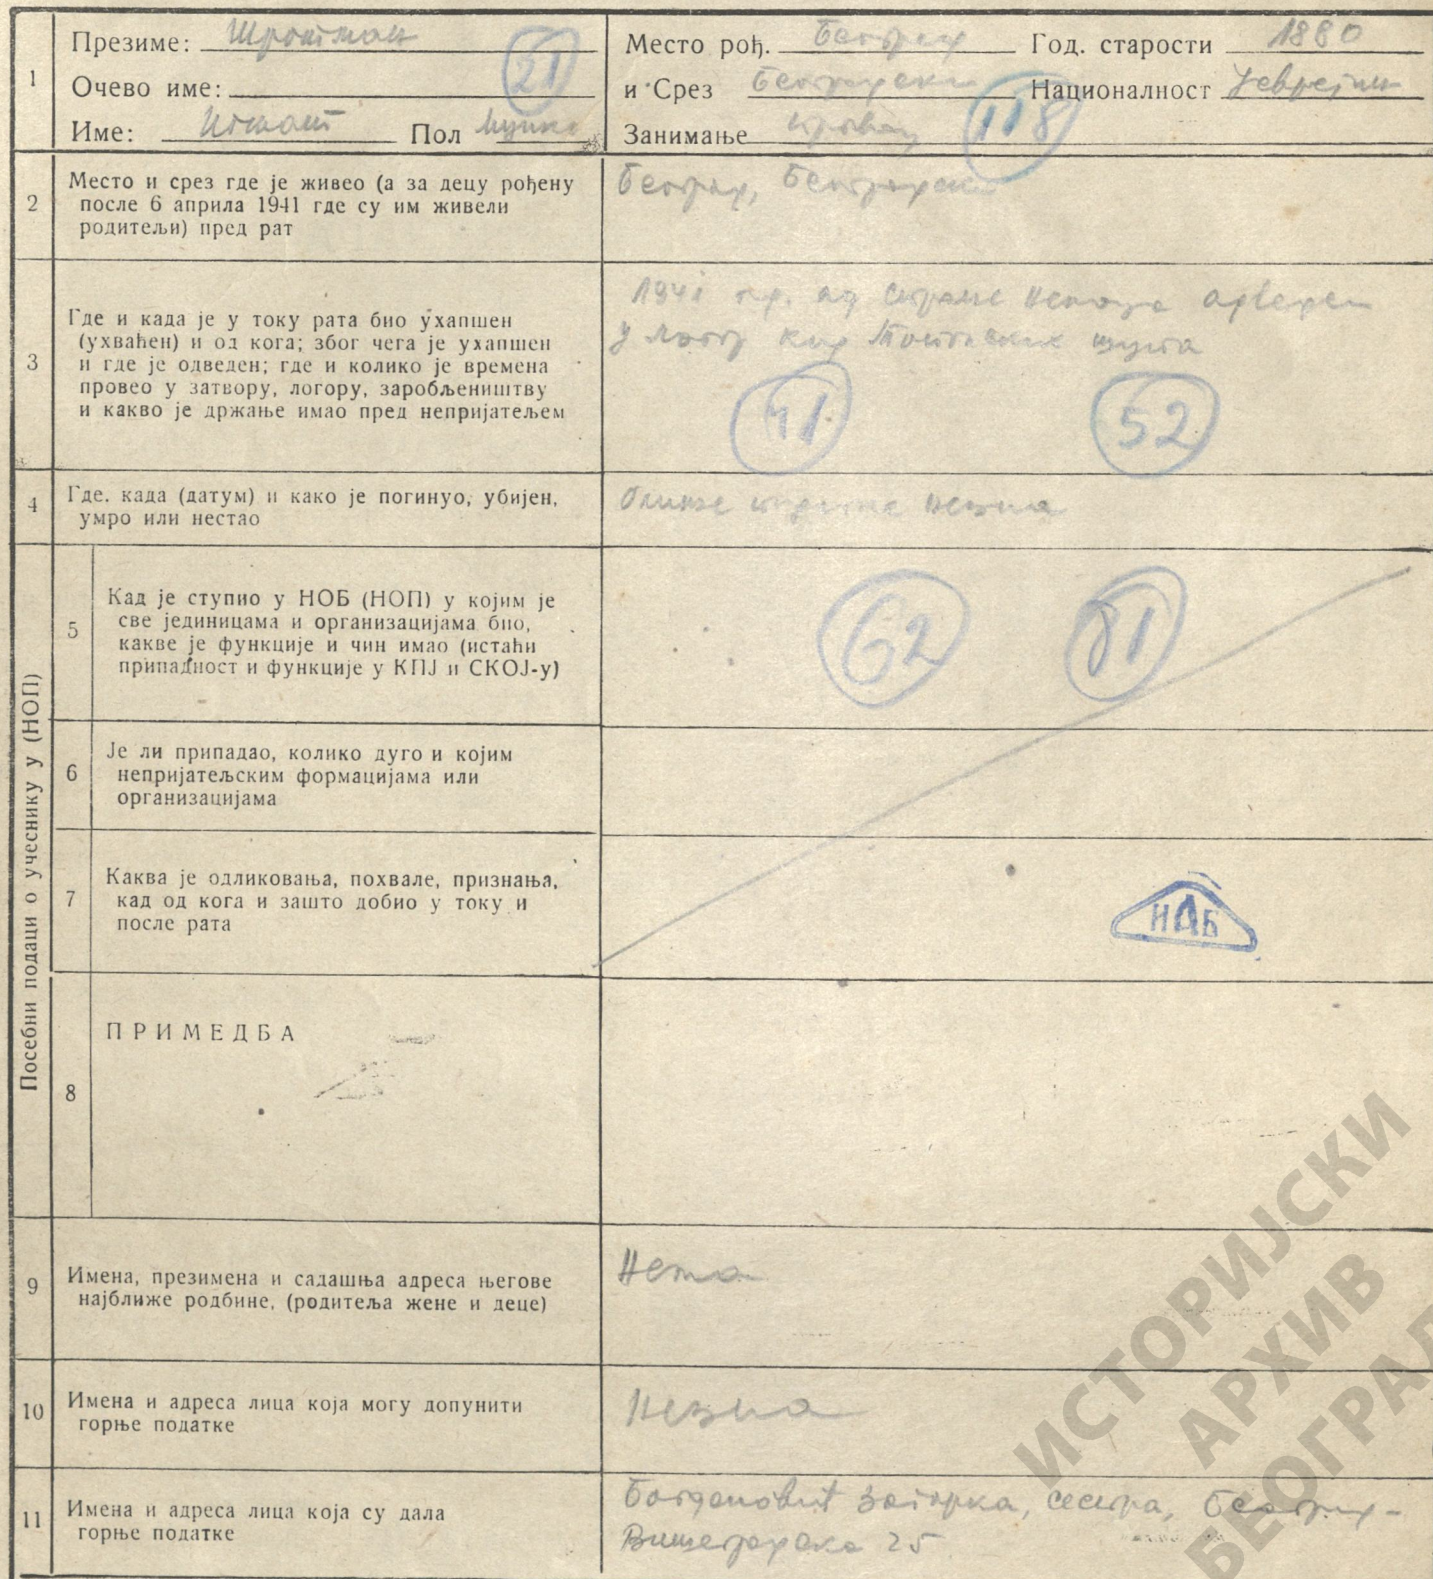 1
Презиме: Шротман
21
Очево име:
Име: Пол мушко
Место рођ. Београд Год. старости 1880
и Срез Београдски Националност Јеврејин
Занимање трговац 118
2
Место и срез где је живео (а за децу рођену
после 6 априла 1941 где су им живели
родитељи) пред рат
Београд, Београдски
3
Где и када је у току рата био ухапшен
(ухваћен) и од кога; због чега је ухапшен
и где је одведен; где и колико је времена
провео у затвору, логору, заробљеништву
и какво је држање имао пред непријатељем
1941 год. од стране Немаца одведен
у логор код шупа
41 52
4
Где, када (датум) и како је погинуо, убијен,
умро или нестао
ближе незна
Посебни подаци о учеснику у (НОП)
5
Кад је ступио у НОБ (НОП) у којим је
све јединицама и организацијама био,
какве је функције и чин имао (истаћи
припадност и функције у КПЈ и СКОЈ-у)
62 81
6
Је ли припадао, колико дуго и којим
непријатељским формацијама или
организацијама
7
Каква је одликовања, похвале, признања,
кад од кога и зашто добио у току и
после рата
ИАБ
8
ПРИМЕДБА
9
Имена, презимена и садашња адреса његове
најближе родбине, (родитеља жене и деце)
Нема
10
Имена и адреса лица која могу допунити
горње податке
Незна
11
Имена и адреса лица која су дала
горње податке
Богдановић Загорка, сестра, Београд -
Вишеградска 25
ИСТОРИЈСКИ
АРХИВ
БЕОГРАД